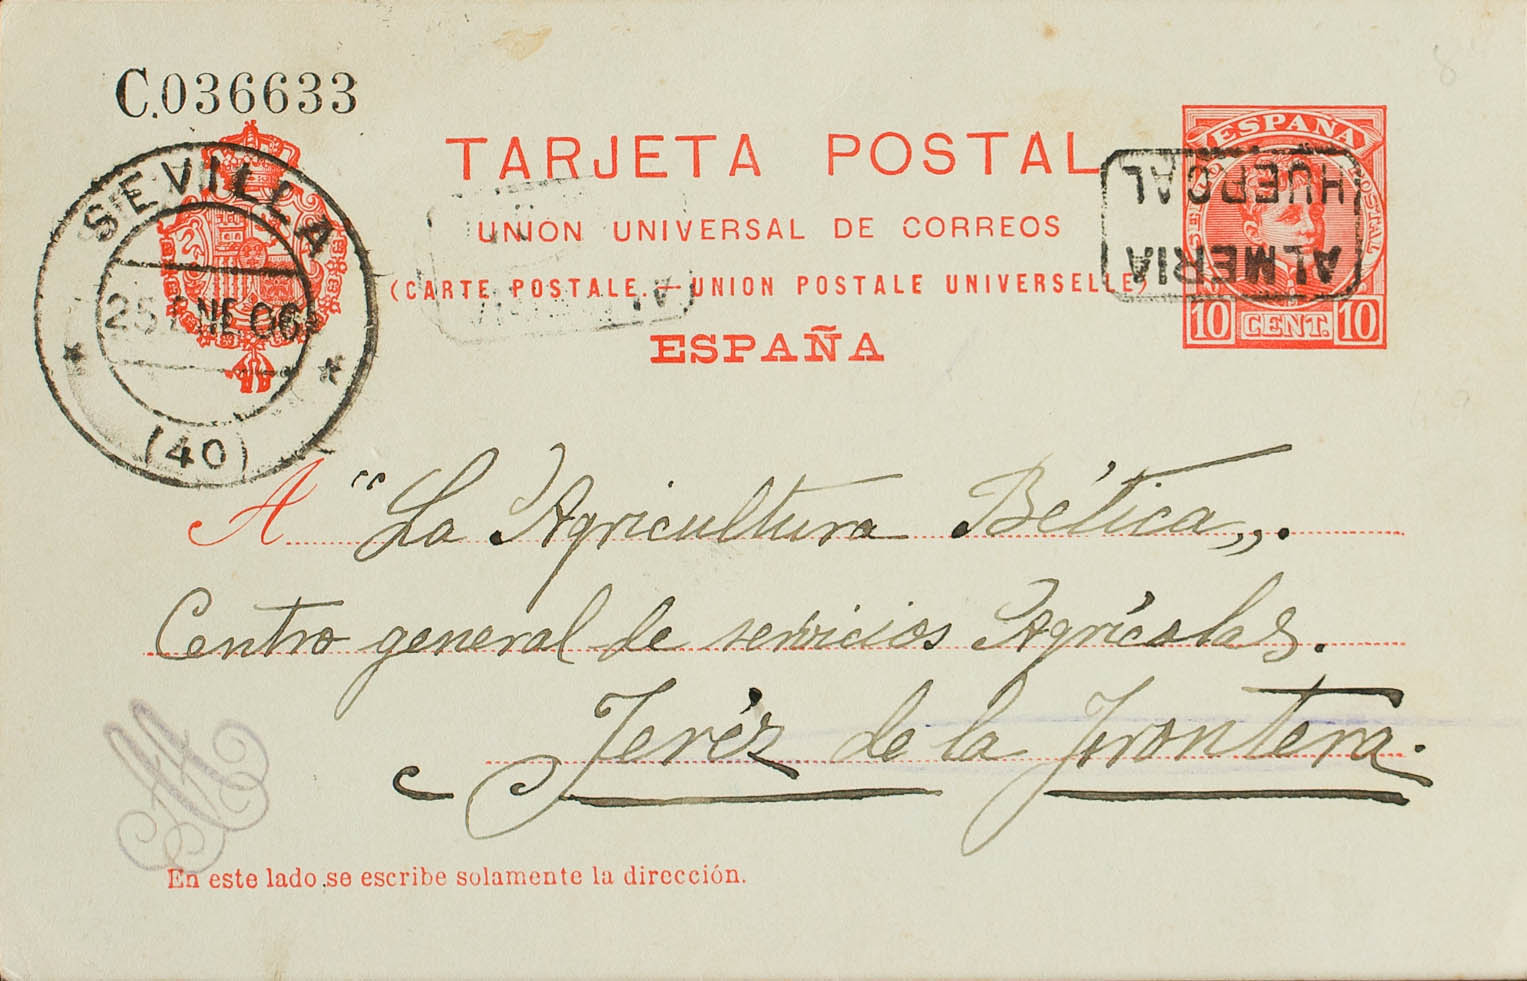 C.036633
TARJETA POSTAL
UNION UNIVERSAL DE CORREOS
(CARTE POSTALE.—UNION POSTALE UNIVERSELLE)
ESPAÑA
SEVILLA
25 ENE 06
(40)
ESPAÑA
POSTAL
10 CENT. 10
HUERCAL
ALMERIA
A "La Agricultura Bética„.
Centro general de servicios Agrícolas.
Jeréz de la Frontera.
En este lado se escribe solamente la dirección.